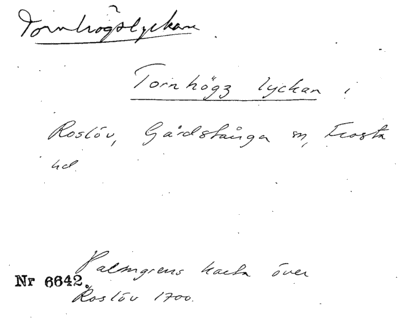 Tornhögslyckan
Tornhögz lyckan i
Roslöv, Gårdstånga sn, Frosta
hd.
Palmgrens karta över
Nr 6642.
Roslöv 1700.